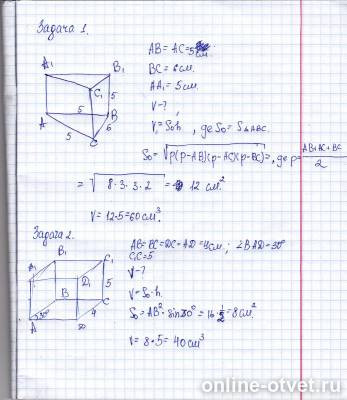 Задача 1.
A₁ B₁ C₁ A B C 5 5 5 6
AB = AC = 5 см.
BC = 6 см.
AA₁ = 5 см.
V - ?
V = S₀h, де S₀ = S△ABC.
S₀ = √p(p-AB)(p-AC)(p-BC) =, де p = AB+AC+BC / 2
= √8·3·3·2 = 12 см²
V = 12·5 = 60 см³.
Задача 2.
B₁ C₁ A₁ D₁ B C A 30° 4 5
AB = BC = DC = AD = 4 см; ∠BAD = 30°
C₁C = 5
V - ?
V = S₀·h.
S₀ = AB²·sin30° = 16·1/2 = 8 см².
V = 8·5 = 40 см³
online-otvet.ru